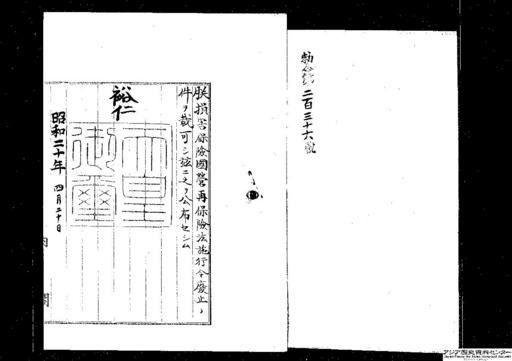 勅令第二百三十六號
朕損害保險國營再保險法施行令廢止ノ
件ヲ裁可シ玆ニ之ヲ公布セシム
裕仁
天皇
御璽
昭和二十年四月二十日
内閣
アジア歴史資料センター